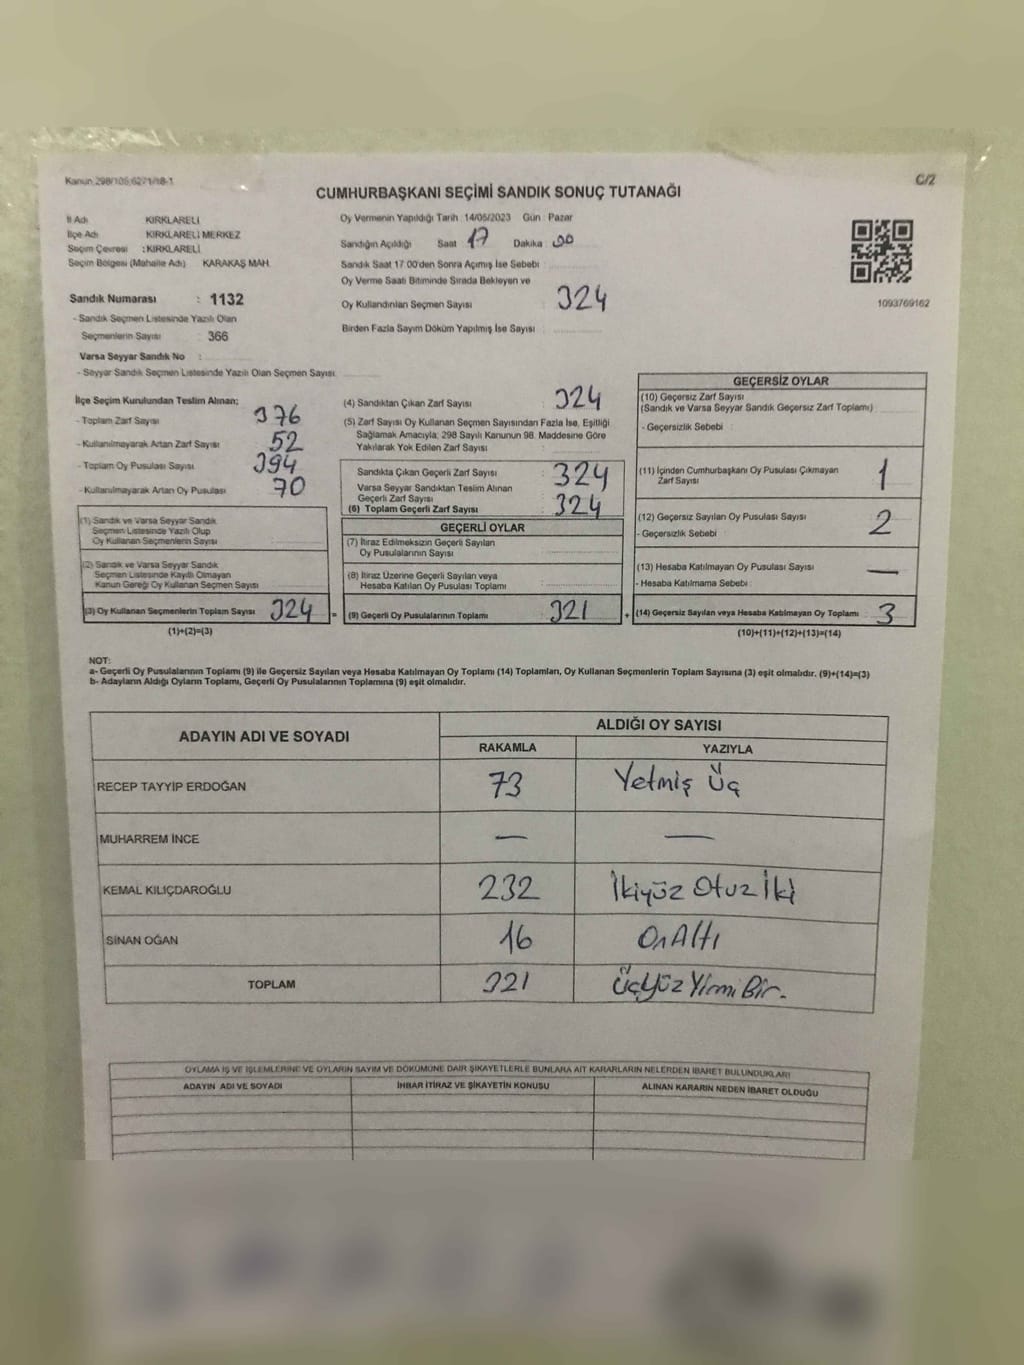 Kanun 298/105;6271/18-1
C/2
CUMHURBAŞKANI SEÇİMİ SANDIK SONUÇ TUTANAĞI
İl Adı KIRKLARELİ
İlçe Adı KIRKLARELİ MERKEZ
Seçim Çevresi : KIRKLARELİ
Seçim Bölgesi (Mahalle Adı) KARAKAŞ MAH.
Sandık Numarası : 1132
- Sandık Seçmen Listesinde Yazılı Olan
Seçmenlerin Sayısı : 366
Varsa Seyyar Sandık No :
- Seyyar Sandık Seçmen Listesinde Yazılı Olan Seçmen Sayısı
Oy Vermenin Yapıldığı Tarih : 14/05/2023 Gün : Pazar
Sandığın Açıldığı Saat 17 Dakika : 00
Sandık Saat 17:00'den Sonra Açımış İse Sebebi :
Oy Verme Saati Bitiminde Sırada Bekleyen ve
Oy Kullandırılan Seçmen Sayısı : 324
Birden Fazla Sayım Döküm Yapılmış İse Sayısı :
1093769162
İlçe Seçim Kurulundan Teslim Alınan;
- Toplam Zarf Sayısı : 376
- Kullanılmayarak Artan Zarf Sayısı : 52
- Toplam Oy Pusulası Sayısı : 394
- Kullanılmayarak Artan Oy Pusulası : 70
(1) Sandık ve Varsa Seyyar Sandık
Seçmen Listesinde Yazılı Olup
Oy Kullanan Seçmenlerin Sayısı :
(2) Sandık ve Varsa Seyyar Sandık
Seçmen Listesinde Kayıtlı Olmayan
Kanun Gereği Oy Kullanan Seçmen Sayısı
(3) Oy Kullanan Seçmenlerin Toplam Sayısı : 324 =
(1)+(2)=(3)
(4) Sandıktan Çıkan Zarf Sayısı : 324
(5) Zarf Sayısı Oy Kullanan Seçmen Sayısından Fazla İse, Eşitliği
Sağlamak Amacıyla; 298 Sayılı Kanunun 98. Maddesine Göre
Yakılarak Yok Edilen Zarf Sayısı :
Sandıkta Çıkan Geçerli Zarf Sayısı : 324
Varsa Seyyar Sandıktan Teslim Alınan
Geçerli Zarf Sayısı :
(6) Toplam Geçerli Zarf Sayısı : 324
GEÇERLİ OYLAR
(7) İtiraz Edilmeksizin Geçerli Sayılan
Oy Pusulalarının Sayısı :
(8) İtiraz Üzerine Geçerli Sayılan veya
Hesaba Katılan Oy Pusulası Toplamı :
(9) Geçerli Oy Pusulalarının Toplamı : 321 +
GEÇERSİZ OYLAR
(10) Geçersiz Zarf Sayısı
(Sandık ve Varsa Seyyar Sandık Geçersiz Zarf Toplamı) :
- Geçersizlik Sebebi :
(11) İçinden Cumhurbaşkanı Oy Pusulası Çıkmayan
Zarf Sayısı : 1
(12) Geçersiz Sayılan Oy Pusulası Sayısı : 2
- Geçersizlik Sebebi :
(13) Hesaba Katılmayan Oy Pusulası Sayısı : —
- Hesaba Katılmama Sebebi :
(14) Geçersiz Sayılan veya Hesaba Katılmayan Oy Toplamı : 3
(10)+(11)+(12)+(13)=(14)
NOT:
a- Geçerli Oy Pusulalarının Toplamı (9) ile Geçersiz Sayılan veya Hesaba Katılmayan Oy Toplamı (14) Toplamları, Oy Kullanan Seçmenlerin Toplam Sayısına (3) eşit olmalıdır. (9)+(14)=(3)
b- Adayların Aldığı Oyların Toplamı, Geçerli Oy Pusulalarının Toplamına (9) eşit olmalıdır.
ADAYIN ADI VE SOYADI ALDIĞI OY SAYISI
RAKAMLA YAZIYLA
RECEP TAYYİP ERDOĞAN 73 Yetmiş Üç
MUHARREM İNCE — —
KEMAL KILIÇDAROĞLU 232 İkiyüz Otuz İki
SİNAN OĞAN 16 On Altı
TOPLAM 321 Üçyüz Yirmi Bir.
OYLAMA İŞ VE İŞLEMLERİNE VE OYLARIN SAYIM VE DÖKÜMÜNE DAİR ŞİKAYETLERLE BUNLARA AİT KARARLARIN NELERDEN İBARET BULUNDUKLARI
ADAYIN ADI VE SOYADI İHBAR İTİRAZ VE ŞİKAYETİN KONUSU ALINAN KARARIN NEDEN İBARET OLDUĞU